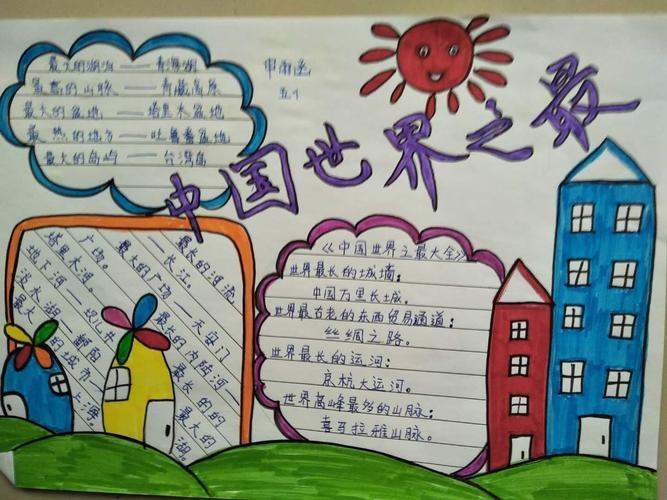 中国世界之最
最大的湖泊——青海湖
最高的山脉——青藏高原
最大的盆地——塔里木盆地
最热的地方——吐鲁番盆地
最大的岛屿——台湾岛
五1
最长的河流
——长江。
最大的广场——天安门
广场。
最大的内陆河——
塔里木河。
最长的
地下河——坎儿井
最大的
淡水湖——鄱阳
湖。
最大的城市——上海。
《中国世界之最大全》
世界最长的城墙：
中国万里长城。
世界最古老的东西贸易通道：
丝绸之路。
世界最长的运河：
京杭大运河。
世界高峰最多的山脉：
喜马拉雅山脉。